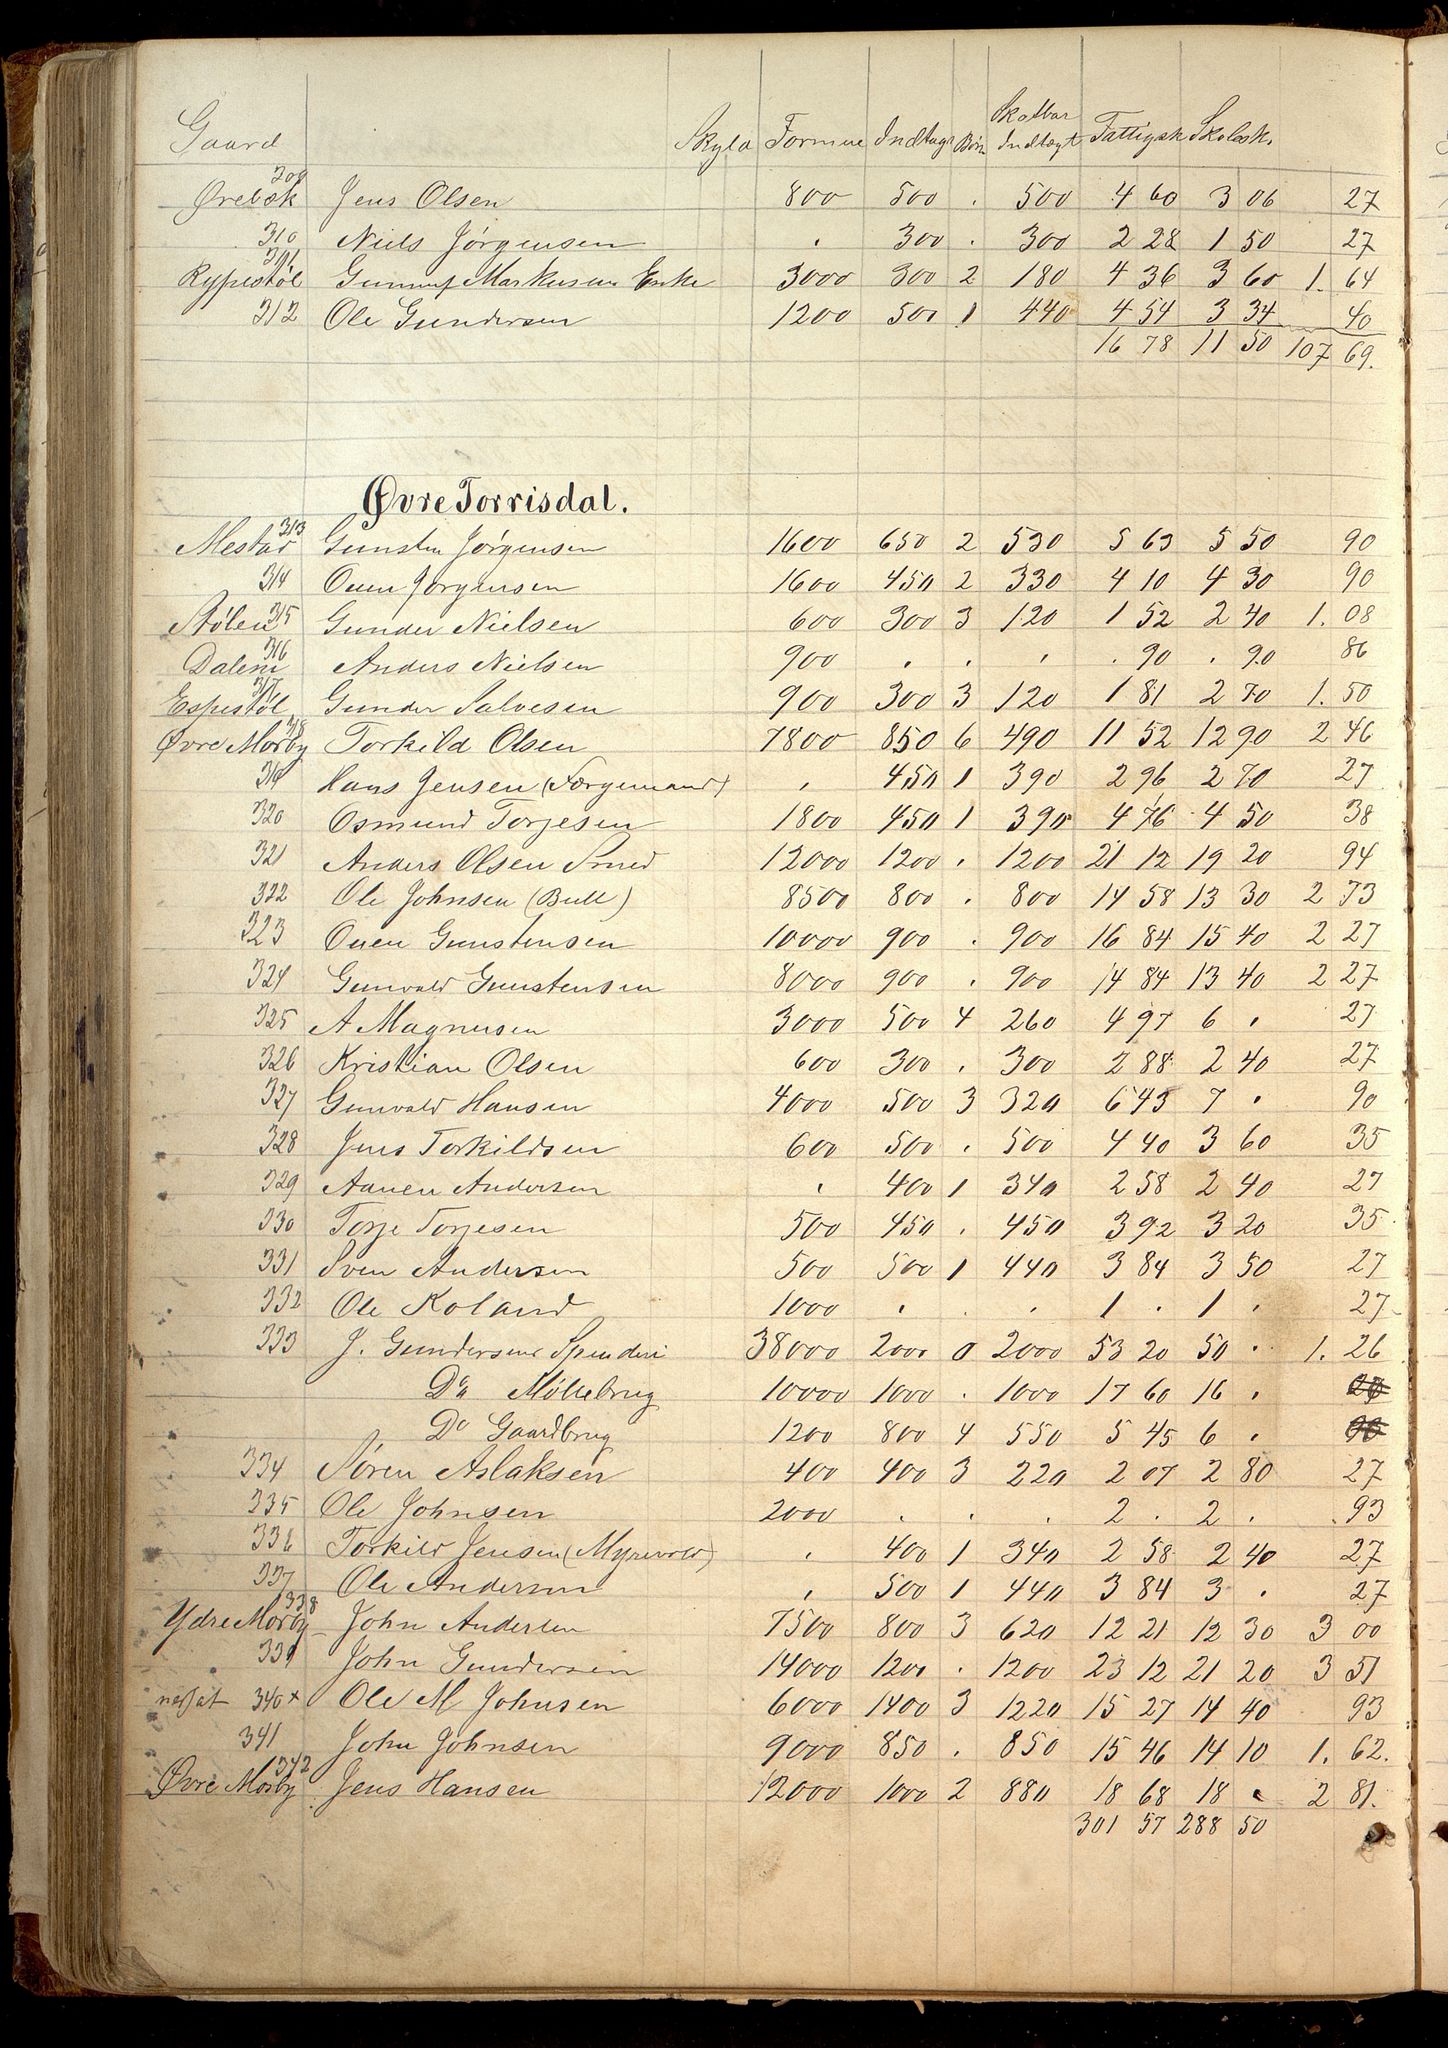 Gaard Skyld Formue Indtægt Børn Skatbar Indtægt Fattigsk Skolesk.
Ørebæk 309 Jens Olsen 800 500 . 500 4 60 3 06 27
310 Niels Jørgensen . 300 . 300 2 28 1 50 27
Rypestøl 311 Gunnuf Markusens Enke 3000 300 2 180 4 36 3 60 1. 64
312 Ole Gundersen 1200 500 1 440 4 54 3 34 40
16 78 11 50 107 69.
Øvre Torrisdal.
Mestad 313 Gunsten Jørgensen 1600 650 2 530 5 63 5 50 90
314 Ouen Jørgensen 1600 450 2 330 4 10 4 30 90
Stølen 315 Gunder Nielsen 600 300 3 120 1 52 2 40 1. 08
Dalene 316 Anders Nielsen 900 . . . . 90 . 90 86
Espestøl 317 Gunder Salvesen 900 300 3 120 1 81 2 70 1. 50
Øvre Morby 318 Torkild Olsen 7800 850 6 490 11 52 12 90 2 46
319 Hans Jensen (Færgemand) . 450 1 390 2 96 2 70 27
320 Osmund Torjesen 1800 450 1 390 4 76 4 50 38
321 Anders Olsen Smed 12000 1200 . 1200 21 12 19 20 94
322 Ole Johnsen (Bull) 8500 800 . 800 14 58 13 30 2 73
323 Ouen Gunstensen 10000 900 . 900 16 84 15 40 2 27
324 Gunvald Gunstensen 8000 900 . 900 14 84 13 40 2 27
325 A Magnusen 3000 500 4 260 4 97 6 . 27
326 Kristian Olsen 600 300 . 300 2 88 2 40 27
327 Gunvald Hansen 4000 500 3 320 6 43 7 . 90
328 Jens Torkildsen 600 500 . 500 4 40 3 60 35
329 Aanen Andersen . 400 1 340 2 58 2 40 27
330 Torje Torjesen 500 450 . 450 3 92 3 20 35
331 Sven Andersen 500 500 1 440 3 84 3 50 27
332 Ole Roland 1000 . . . 1 . 1 . 27
333 J. Gundersens Spinderi 38000 2000 0 2000 53 20 50 . 1. 26
Do Møllebrug 10000 1000 . 1000 17 60 16 .
Do Gaardbrug 1200 800 4 550 5 45 6 .
334 Søren Aslaksen 400 400 3 220 2 07 2 80 27
335 Ole Johnsen 2000 . . . 2 . 2 . . 93
336 Torkild Jensen (Myrevold) . 400 1 340 2 58 2 40 27
337 Ole Andersen . 500 1 440 3 84 3 . 27
Ydre Morby 338 John Andersen 7500 800 3 620 12 21 12 30 3 00
339 John Gundersen 14000 1200 . 1200 23 12 21 20 3 51
340 x Ole M Johnsen 6000 1400 3 1220 15 27 14 40 93
341 John Johnsen 9000 850 . 850 15 46 14 10 1. 62.
Øvre Morby 342 Jens Hansen 12000 1000 2 880 18 68 18 . 2 81.
301 57 288 50